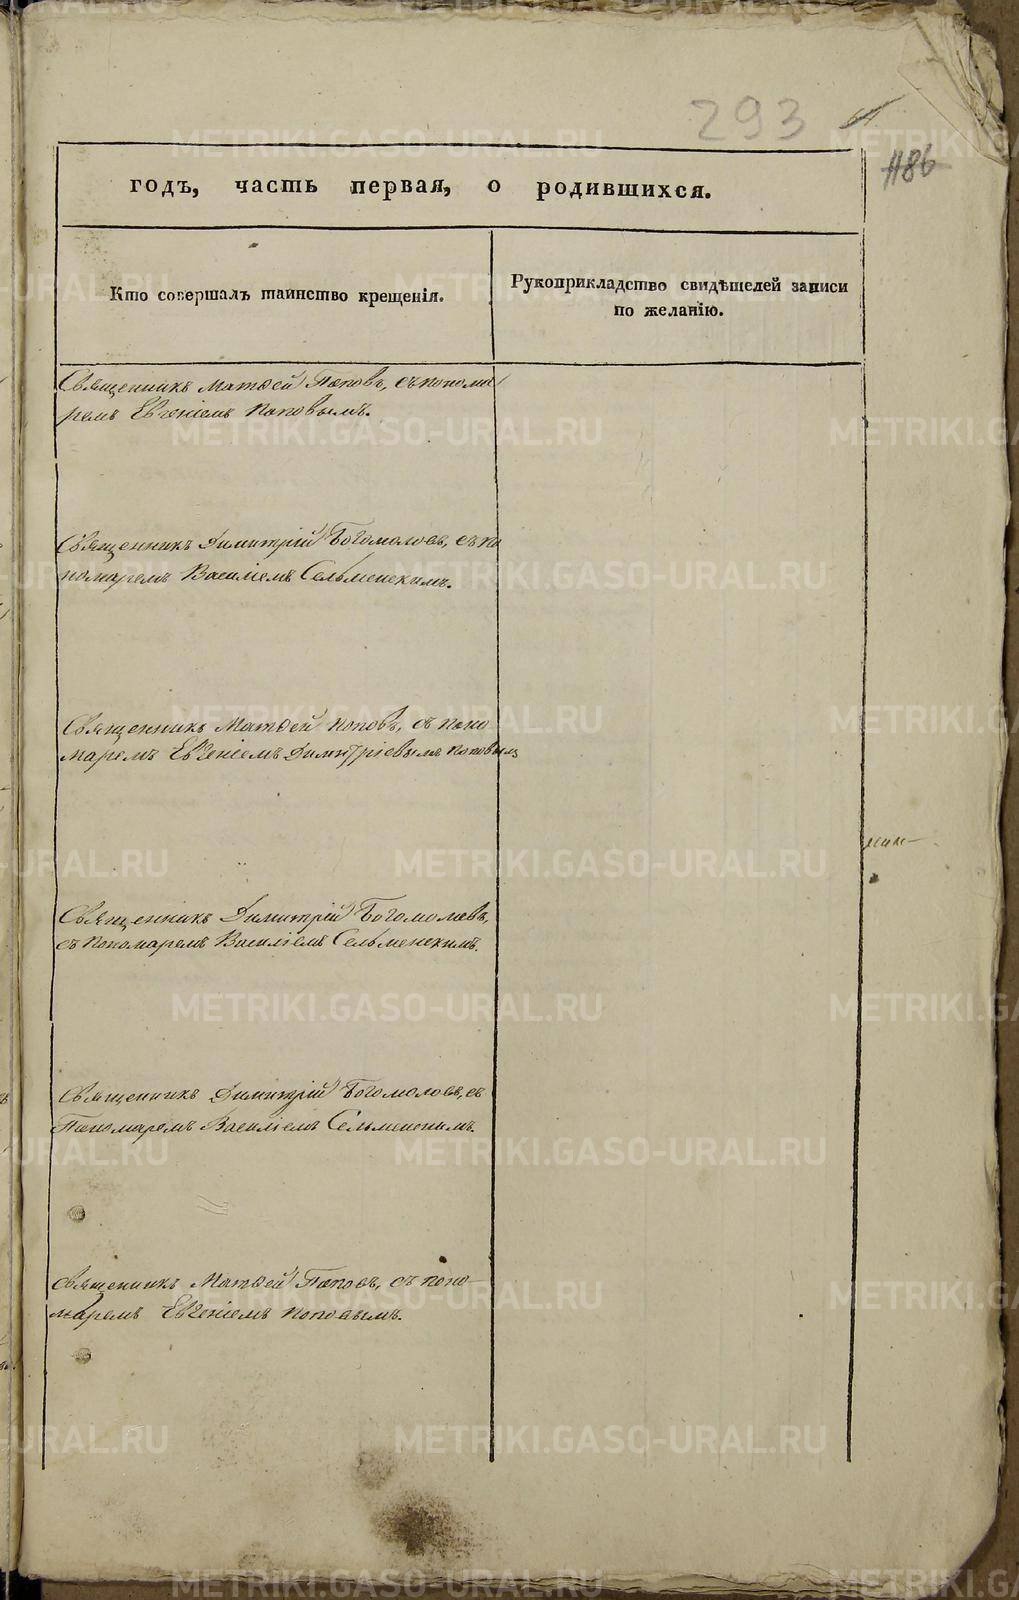 293
1186
годъ, часть первая, о родившихся.
Кто совершалъ таинство крещенія.
Рукоприкладство свидѣтелей записи
по желанію.
Священникъ Матѳей Поповъ, съ понома
ремъ Евгеніемъ Поповымъ.
Священникъ Димитрій Богомоловъ, съ по
номаремъ Василіемъ Сельменскимъ.
Священникъ Матѳей Поповъ, съ поно
маремъ Евгеніемъ Димитріевымъ Поповымъ
Священникъ Димитрій Богомоловъ,
съ пономаремъ Василіемъ Сельменскимъ.
Священникъ Димитрій Богомоловъ, съ
Пономаремъ Василіемъ Сельменскимъ.
Священникъ Матѳей Поповъ, съ поно
маремъ Евгеніемъ Поповымъ.
METRIKI.GASO-URAL.RU